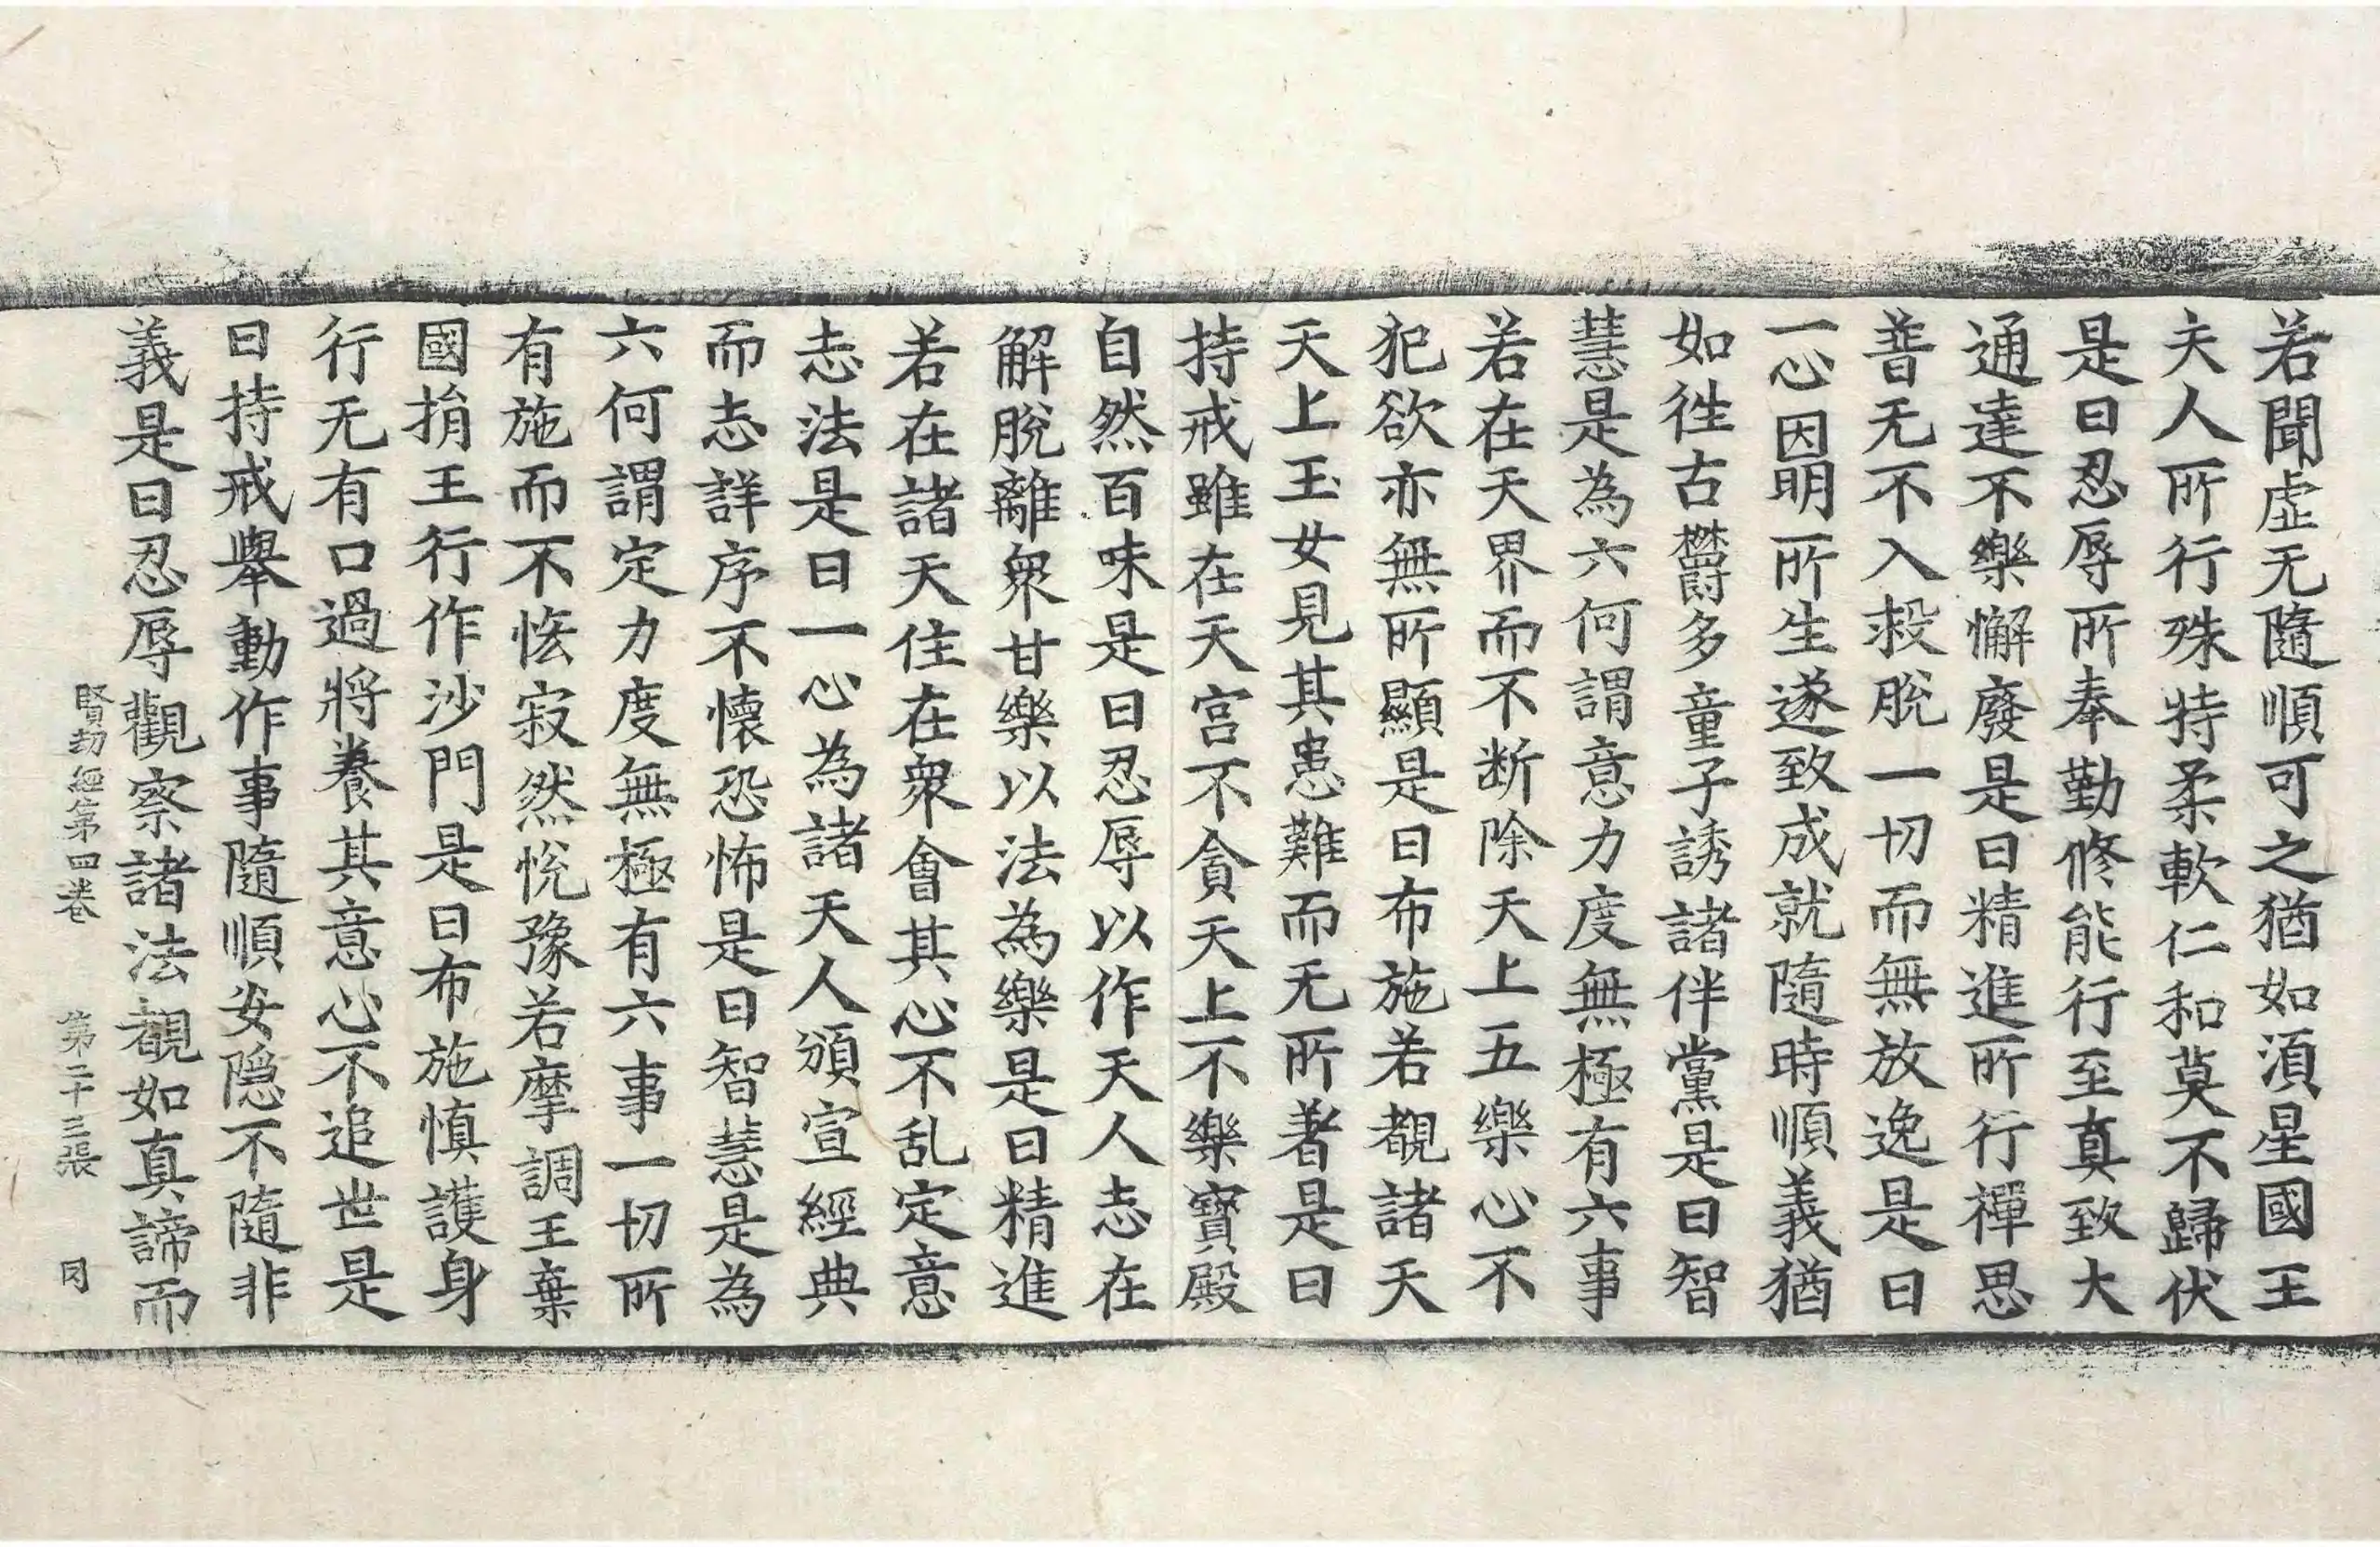 若聞虛无隨順可之猶如湏星國王
夫人所行殊特柔軟仁和莫不歸伏
是曰忍辱所奉勤修能行至真致大
通達不樂懈廢是曰精進所行禪思
普无不入投脫一切而無放逸是曰
一心因明所生遂致成就隨時順義猶
如徃古欝多童子誘諸伴黨是曰智
慧是為六何謂意力度無極有六事
若在天界而不断除天上五樂心不
犯欲亦無所顯是曰布施若覩諸天
天上玉女見其患難而无所著是曰
持戒雖在天宮不貪天上不樂寳殿
自然百味是曰忍辱以作天人志在
解脫離衆甘樂以法為樂是曰精進
若在諸天住在衆會其心不乱定意
志法是曰一心為諸天人頒宣經典
而志詳序不懷恐怖是曰智慧是為
六何謂定力度無極有六事一切所
有施而不悋寂然悅豫若摩調王棄
國捐王行作沙門是曰布施慎護身
行无有口過將養其意心不追世是
曰持戒舉動作事隨順安隠不隨非
義是曰忍辱觀察諸法覩如真諦而
賢劫經第四卷 第二十三張